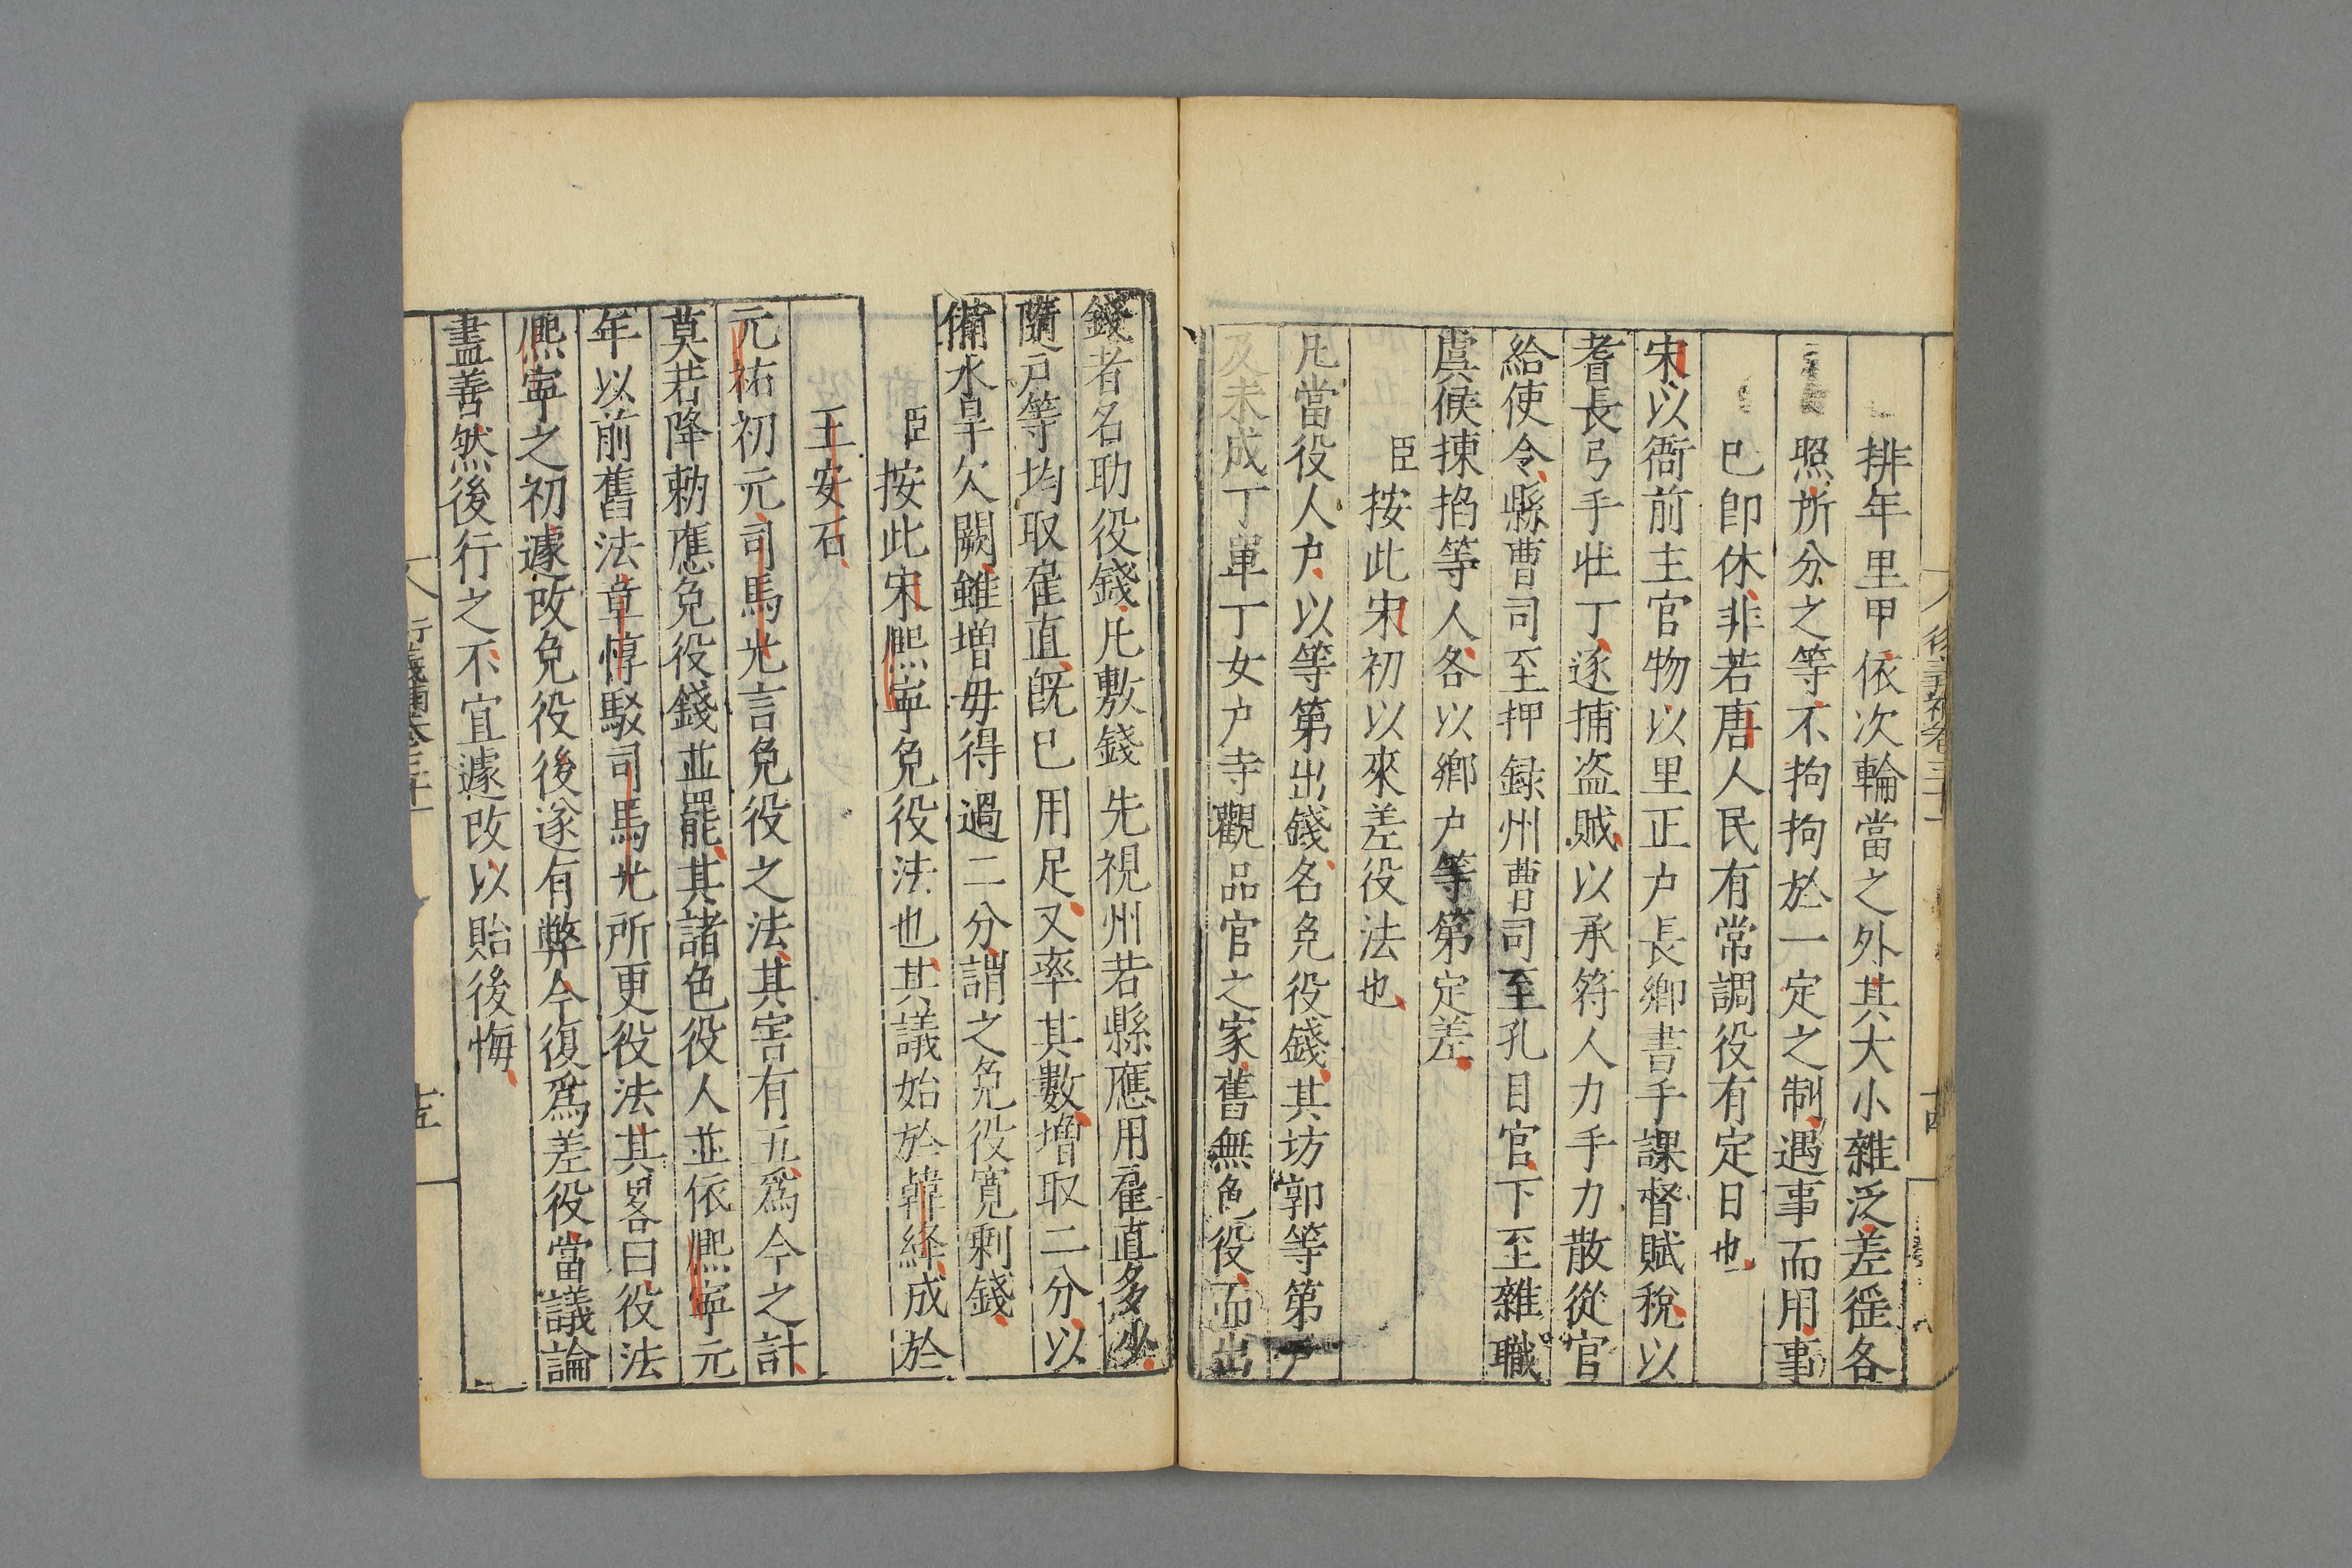 排年里甲依次輪當之外其大小雜泛差徭各
照所分之等不拘拘於一定之制遇事而用事
已即休非若唐人民有常調役有定日也
宋以衙前主官物以里正户長鄉書手課督賦稅以
耆長弓手壯丁逐捕盗賊以承符人力手力散從官
給使令縣曹司至押録州曹司至孔目官下至雜職
虞候揀掐等人各以鄉户等第定差
臣按此宋初以來差役法也
凡當役人户以等第出錢名免役錢其坊郭等第户
及未成丁單丁女户寺觀品官之家舊無色役而出
錢者名助役錢凡敷錢先視州若縣應用雇直多少
隨户等均取雇直既已用足又率其數增取二分以
備水旱欠闕雖増毋得過二分謂之免役寛剩錢
臣按此宋熈寧免役法也其議始於韓絳成於
王安石
元祐初元司馬光言免役之法其害有五為今之計
莫若降勑應免役錢並罷其諸色役人並依熈寧元
年以前舊法章惇駁司馬光所更役法其畧曰役法
熈寧之初遽改免役後遂有弊今復爲差役當議論
盡善然後行之不宜遽改以貽後悔